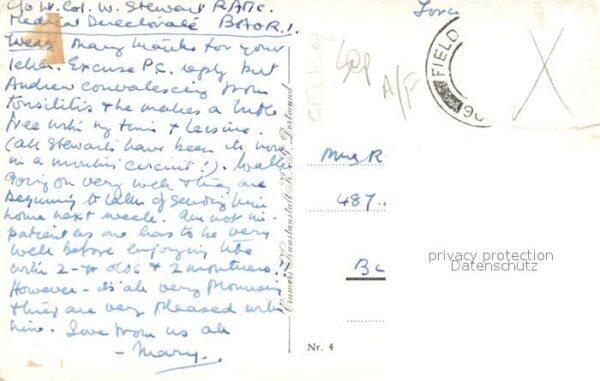 c/o Lt. Col. W. Stewart RAMC.
Medical Directorate BAOR 1.
Many thanks for your
letter. Excuse P.C. reply but
Andrew convalescing from
tonsilitis & he makes a little
free with my time & leisure.
(all Stewarts have been it now
in a months circuit!).
going on very well & they are
beginning to talk of sending him
home next week. Am not im-
patient as one has to be very
well before enjoying life
with 2-yr olds & 2 monthers!!
However - its all very promising
& they are very pleased with
him. Love from us all
- Mary.
Cramers Kunstanstalt K. G. Dortmund
Nr. 4
FIELD
A/F
X
Mrs R
487
privacy protection
Datenschutz